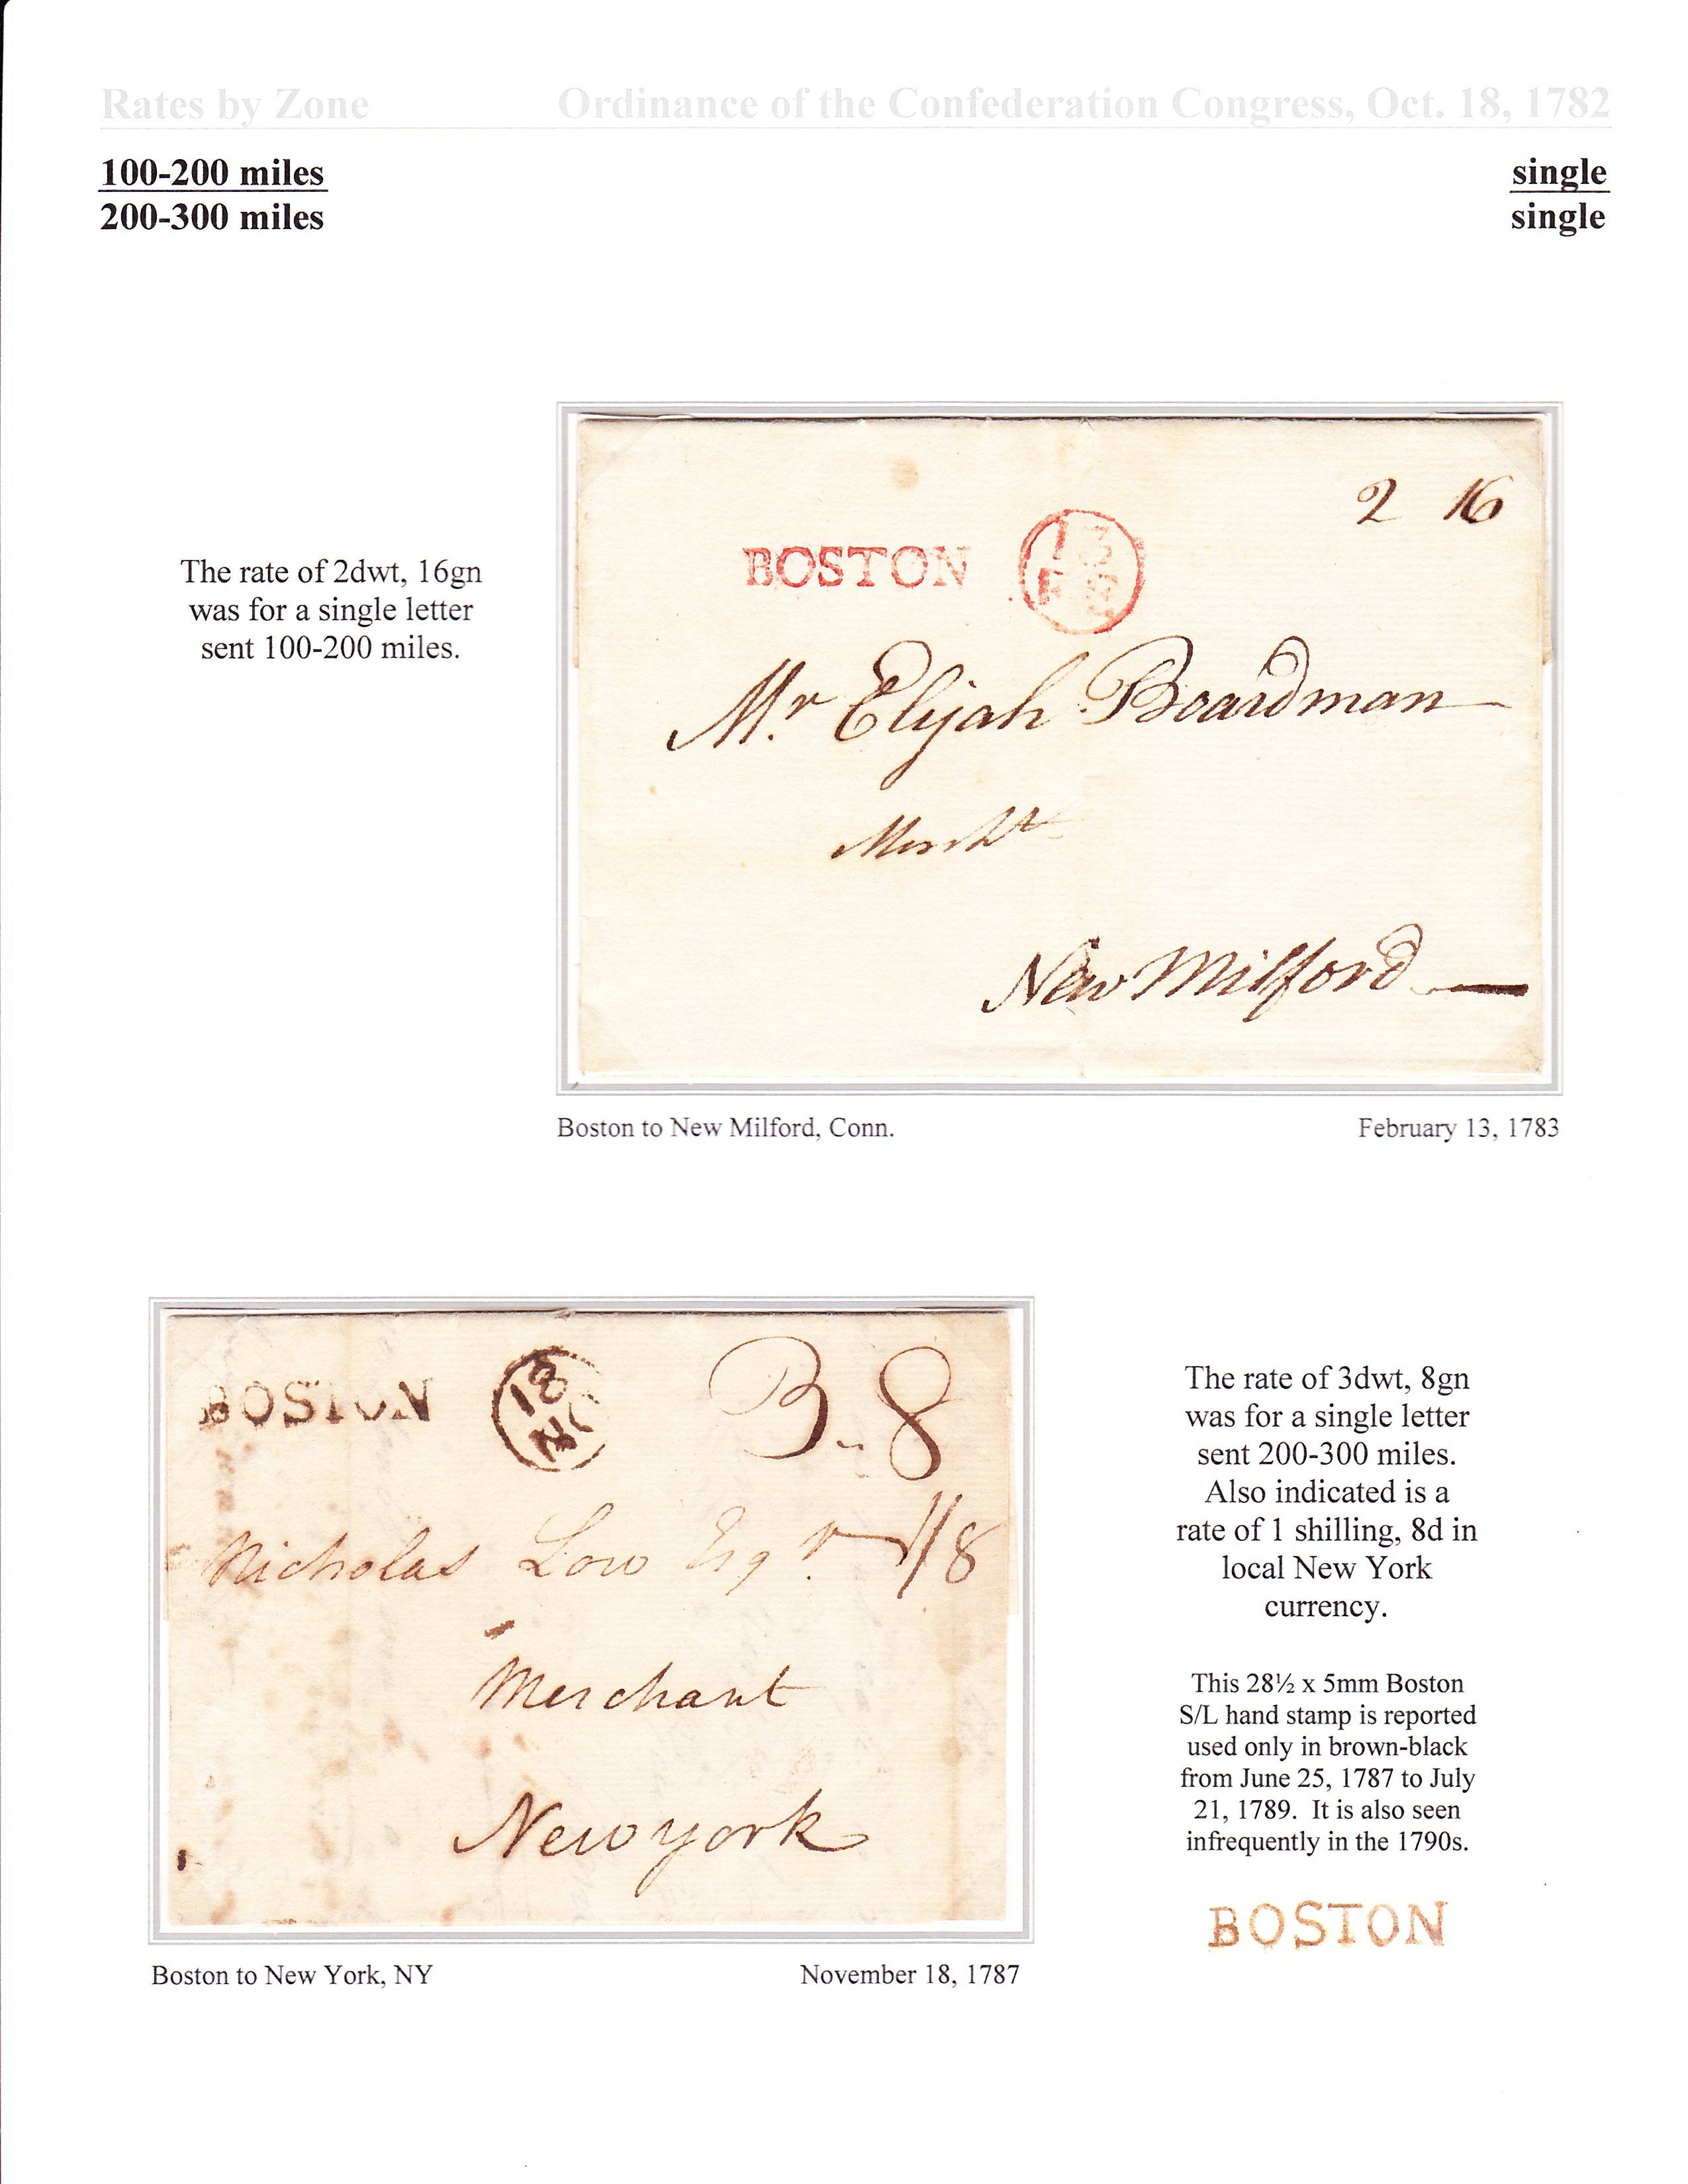 Rates by Zone Ordinance of the Confederation Congress, Oct. 18, 1782
100-200 miles single
200-300 miles single
The rate of 2dwt, 16gn
was for a single letter
sent 100-200 miles.
2 16
BOSTON 13
FE
Mr. Elijah Boardman
Mercht
New Milford
Boston to New Milford, Conn. February 13, 1783
BOSTON 18 3.. 8
NO
Nicholas Low Esqr. 1/8
Merchant
New york
Boston to New York, NY November 18, 1787
The rate of 3dwt, 8gn
was for a single letter
sent 200-300 miles.
Also indicated is a
rate of 1 shilling, 8d in
local New York
currency.
This 28½ x 5mm Boston
S/L hand stamp is reported
used only in brown-black
from June 25, 1787 to July
21, 1789. It is also seen
infrequently in the 1790s.
BOSTON